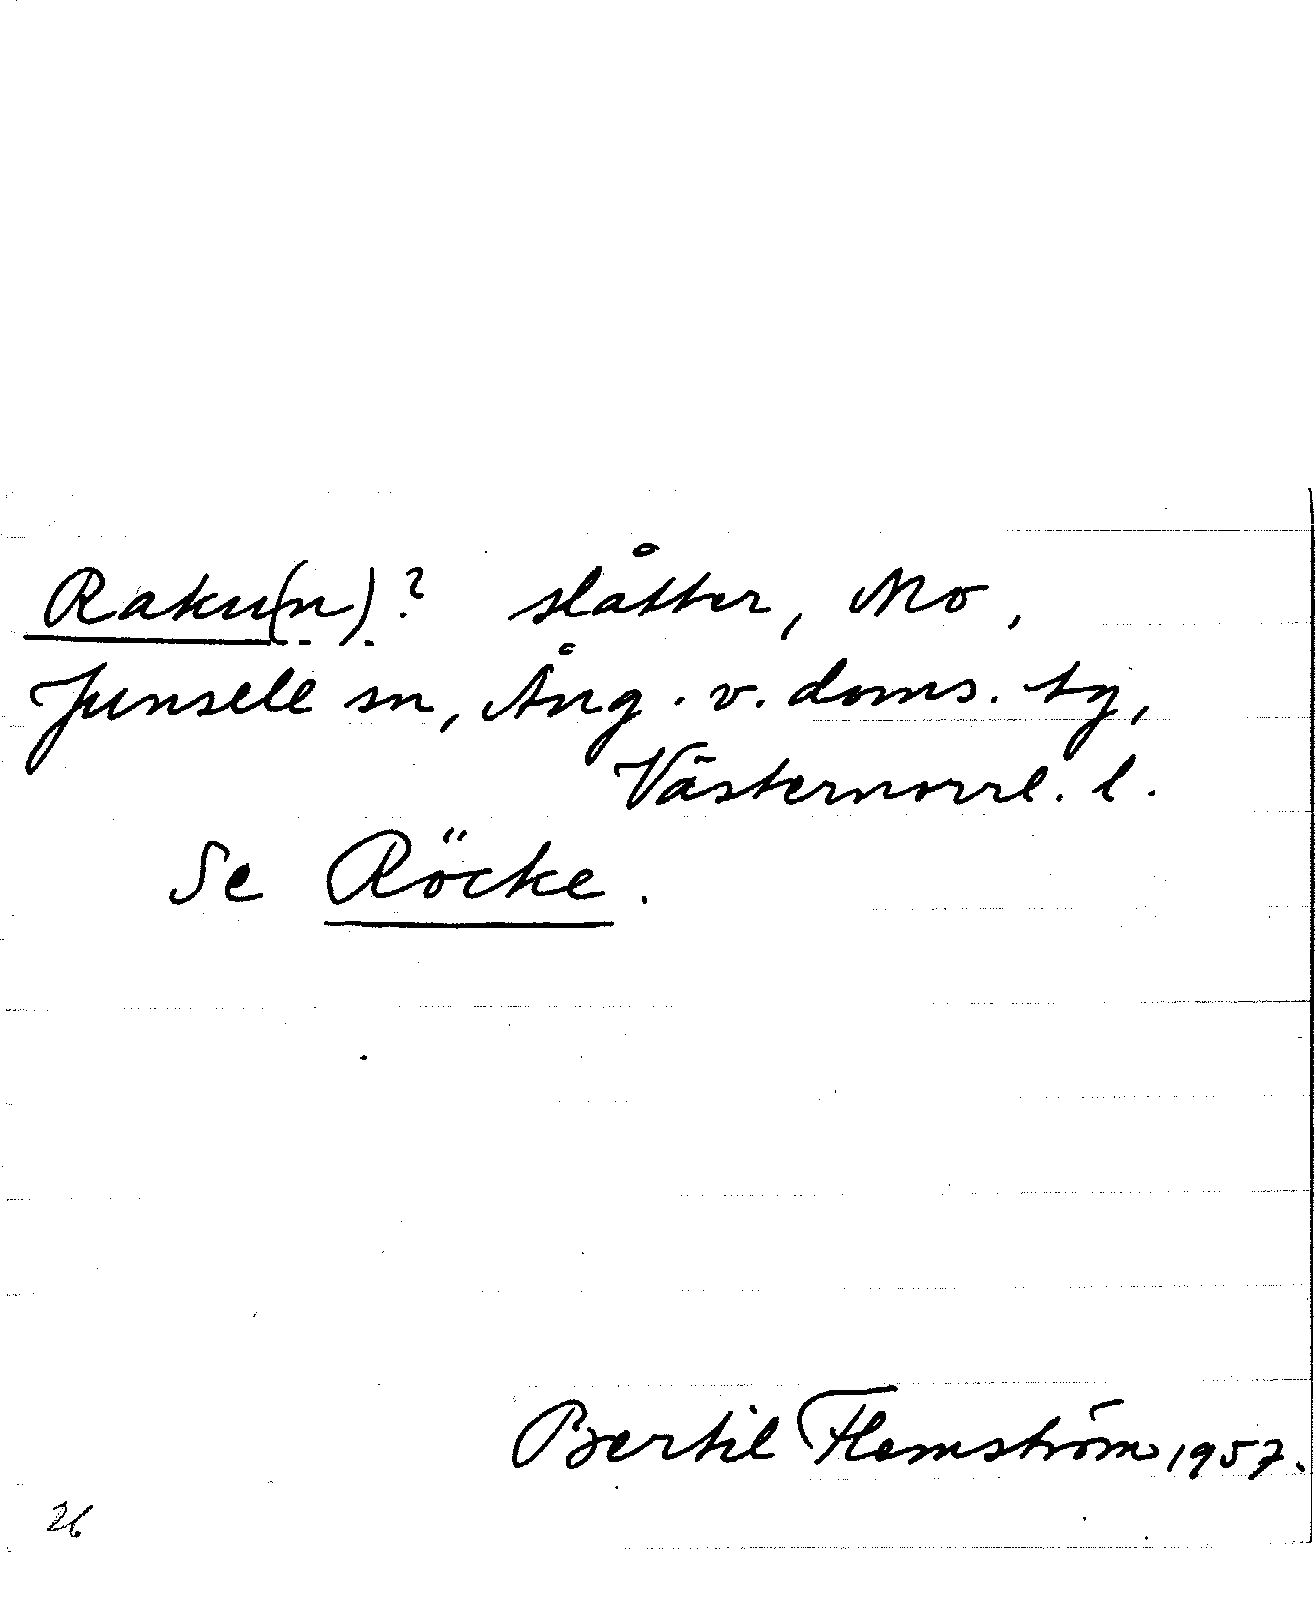 Raku(n)? slåtter, Mo,
Junsele sn, Ång. v. doms. tg,
Västernorrl. l.
Se Röcke.
Bertil Flemström 1957.
26